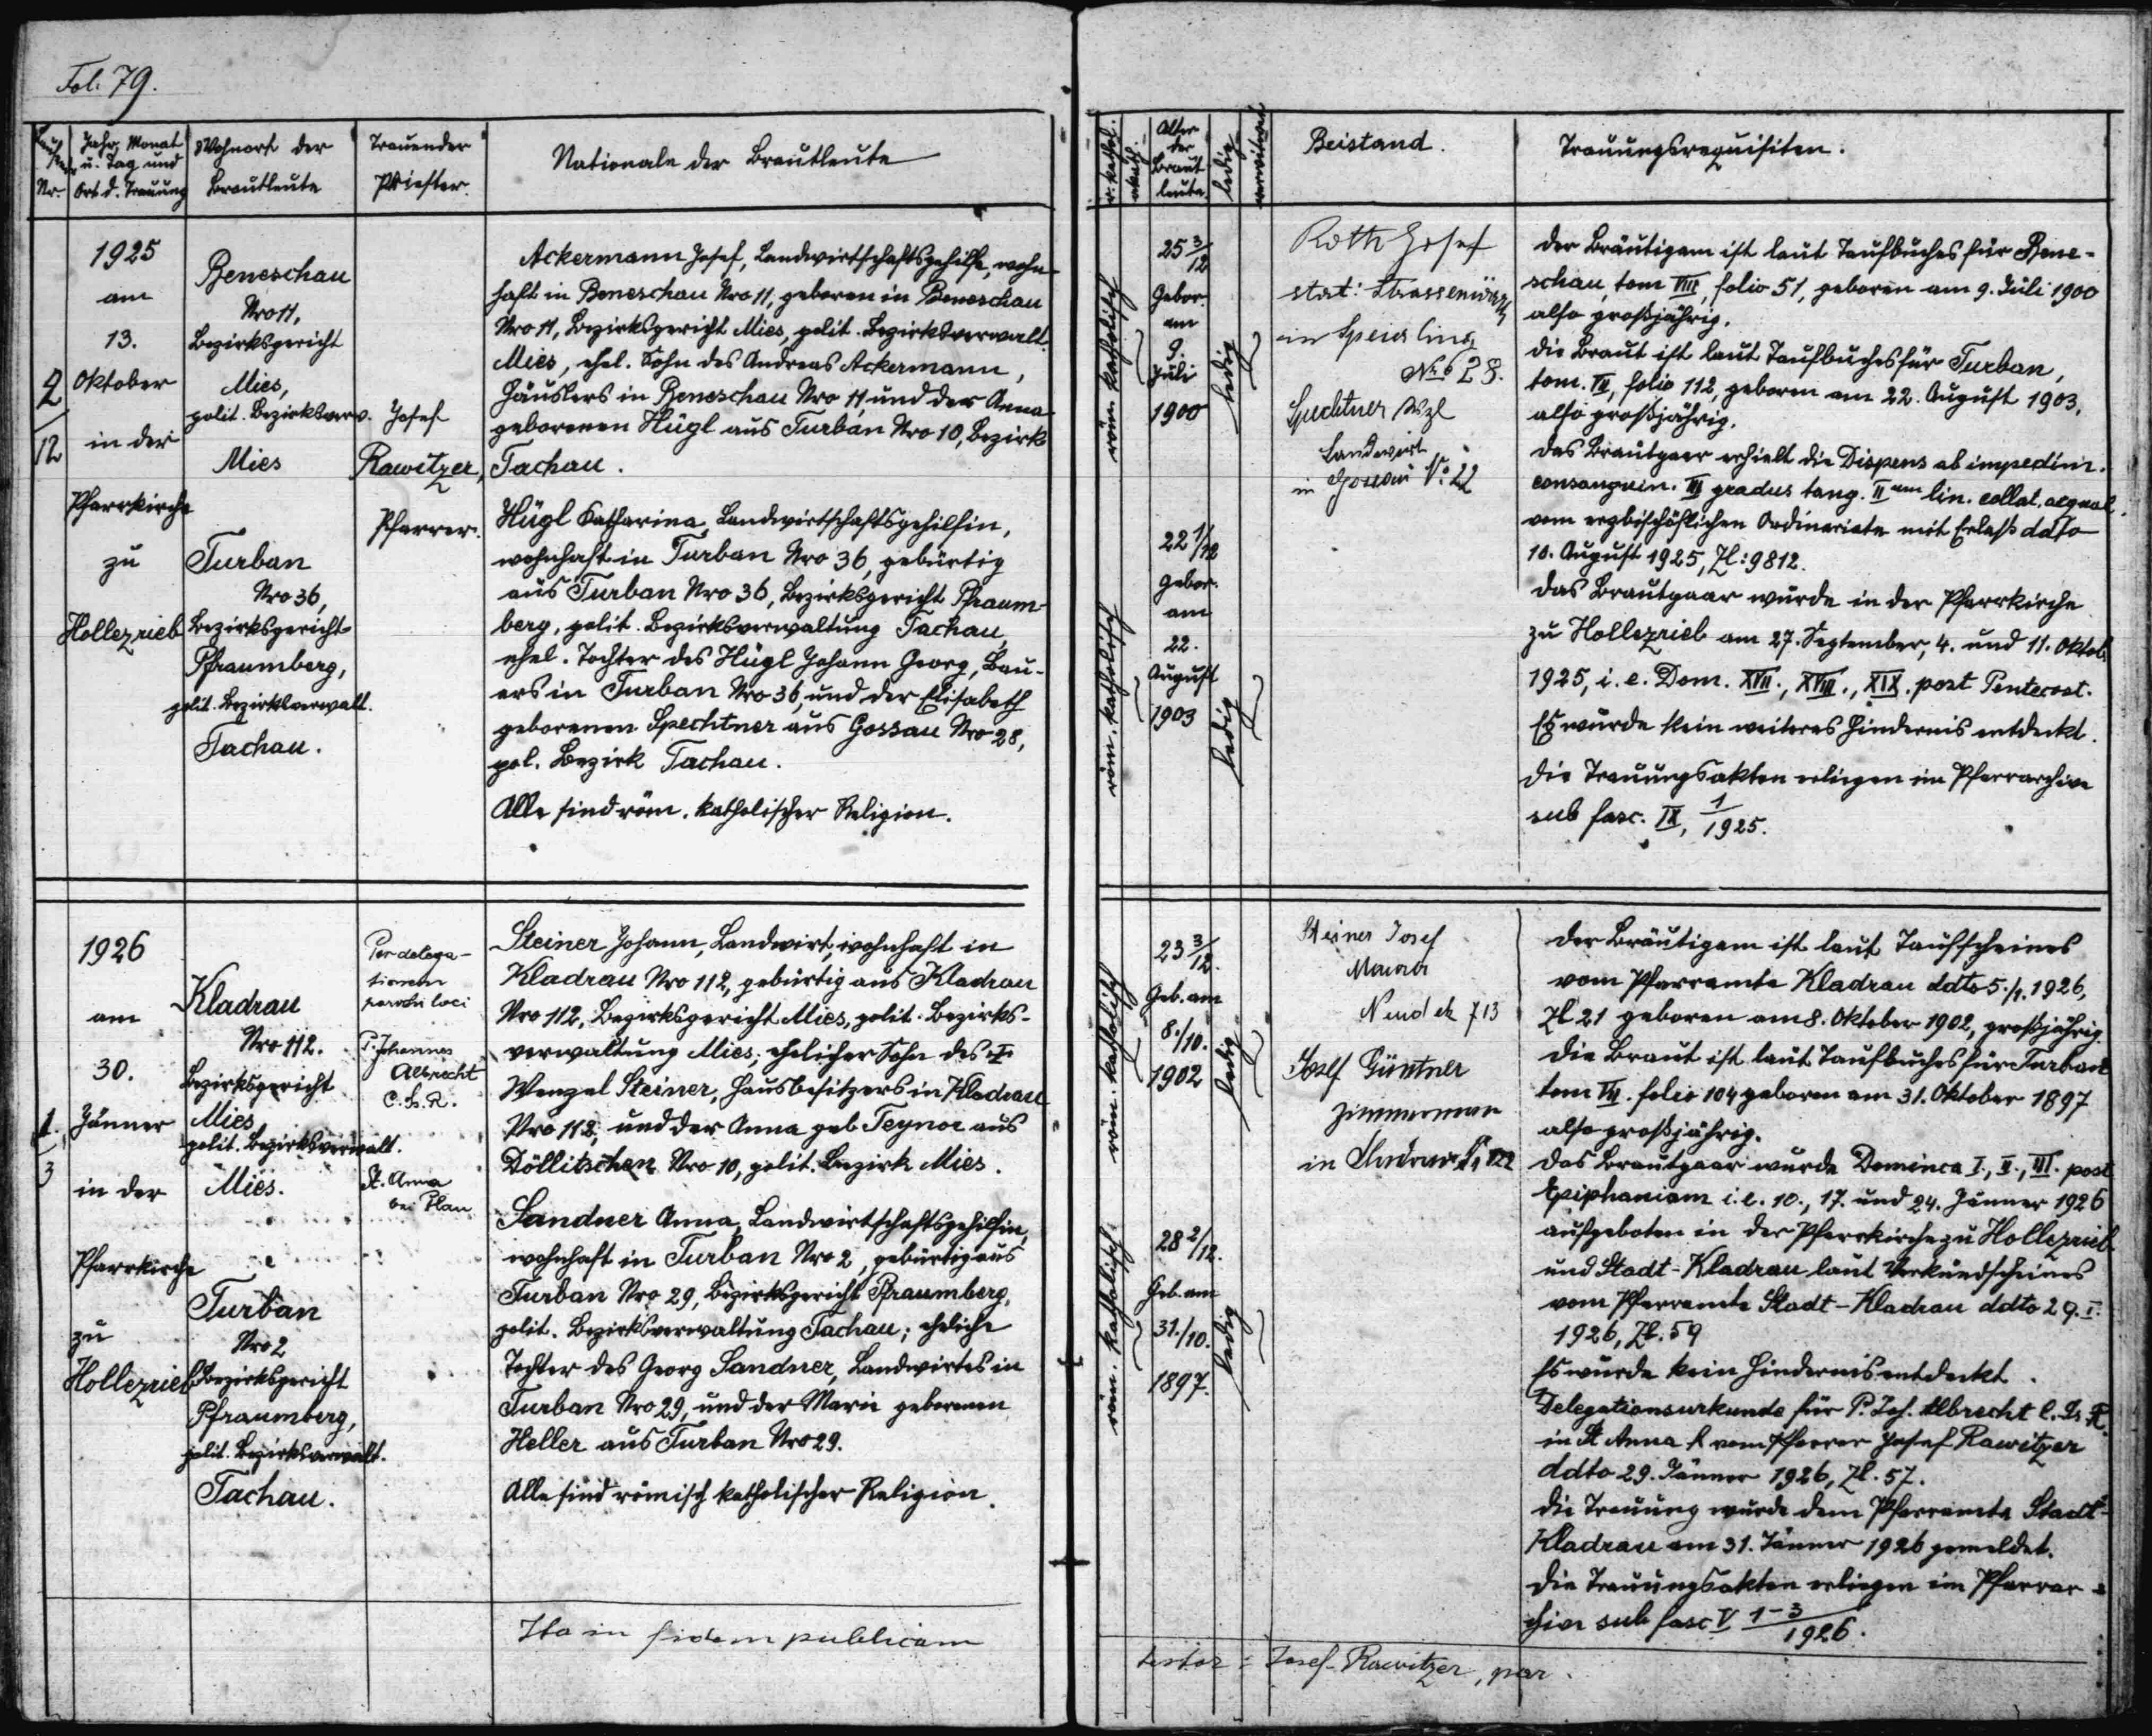 Fol. 79.
Nr.
Jahr, Monat
u. Tag und
Ort d. Trauung
Wohnort der
Brautleute
Trauender
Priester.
Nationale der Brautleute
1925
am
13.
Oktober
in der
Pfarrkirche
zu
Hollezrieb
2
12
Beneschau
Nro 11,
Bezirksgericht
Mies,
polit. Bezirksverw.
Mies
Turban
Nro 36,
Bezirksgericht
Pfraumberg,
polit. Bezirksverwalt.
Tachau.
Josef
Rawitzer,
Pfarrer.
Ackermann Josef, Landwirtschaftsgehilfe, wohn-
haft in Beneschau Nro 11, geboren in Beneschau
Nro 11, Bezirksgericht Mies, polit. Bezirksverwalt.
Mies, ehel. Sohn des Andreas Ackermann,
Häuslers in Beneschau Nro 11, und der Anna
geborenen Hügl aus Turban Nro 10, Bezirk
Tachau.
Hügl Katharina, Landwirtschaftsgehilfin,
wohnhaft in Turban Nro 36, gebürtig
aus Turban Nro 36, Bezirksgericht Pfraum-
berg, polit. Bezirksverwaltung Tachau,
ehel. Tochter des Hügl Johann Georg, Bau-
ers in Turban Nro 36, und der Elisabeth
geborenen Spechtner aus Gossau Nro 28,
pol. Bezirk Tachau.
Alle sind röm. katholischer Religion.
1926
am
30.
Jänner
in der
Pfarrkirche
zu
Hollezrieb
1.
3
Kladrau
Nro 112.
Bezirksgericht
Mies
polit. Bezirksverwalt.
Mies.
Turban
Nro 2
Bezirksgericht
Pfraumberg,
polit. Bezirksverwalt.
Tachau.
Per delega-
tionem
parochi loci
P. Johannes
Albrecht
C. Ss. R.
St. Anna
bei Plan
Steiner Johann, Landwirt, wohnhaft in
Kladrau Nro 112, gebürtig aus Kladrau
Nro 112, Bezirksgericht Mies, polit. Bezirks-
verwaltung Mies; ehelicher Sohn des †
Wenzel Steiner, Hausbesitzers in Kladrau
Nro 112, und der Anna geb. Teynor aus
Döllitschen Nro 10, polit. Bezirk Mies.
Sandner Anna, Landwirtschaftsgehilfin,
wohnhaft in Turban Nro 2, gebürtig aus
Turban Nro 29, Bezirksgericht Pfraumberg,
polit. Bezirksverwaltung Tachau; eheliche
Tochter des Georg Sandner, Landwirtes in
Turban Nro 29, und der Marie geborenen
Heller aus Turban Nro 29.
Alle sind römisch katholischer Religion.
Ita in fidem publicam
r. kathol.
akath.
Alter
der
Braut-
leute.
ledig
verwitwet
Beistand.
Trauungsrequisiten.
röm. katholisch
25 3/12
Gebor.
am
9.
Juli
1900
ledig
röm. katholisch
22 1/12
Gebor.
am
22.
August
1903
ledig
Roth Josef
in
No 28.
Spechtner Wzl
Landwirt
in Gossau No. 22
Der Bräutigam ist laut Taufbuches für Bene-
schau, tom VIII, folio 51, geboren am 9. Juli 1900
also großjährig.
Die Braut ist laut Taufbuches für Turban,
tom. VII, folio 112, geboren am 22. August 1903,
also großjährig.
Das Brautpaar erhielt die Dispens ab impedim.
consanguin. III gradus tang. II um lin. collat. aequal.
vom erzbischöflichen Ordinariate mit Erlaß dato
10. August 1925, Zl: 9812.
Das Brautpaar wurde in der Pfarrkirche
zu Hollezrieb am 27. September, 4. und 11. Oktob.
1925, i. e. Dom. XVII., XVIII., XIX. post Pentecost.
Es wurde kein weiteres Hindernis entdeckt.
Die Trauungsakten erliegen im Pfarrarchive
sub fasc. IX, 1/1925.
röm. katholisch
23 3/12.
Geb. am
8./10.
1902
ledig
röm. katholisch
28 2/12.
Geb. am
31./10.
1897.
ledig
Steiner Josef
Maurer
713
Josef Güntner
Zimmerman
in Kladrau
Der Bräutigam ist laut Taufscheines
vom Pfarramte Kladrau ddto 5./1. 1926,
Zl 21 geboren am 8. Oktober 1902, großjährig.
Die Braut ist laut Taufbuches für Turban
tom VII. folio 104 geboren am 31. Oktober 1897
also großjährig.
Das Brautpaar wurde Dominca I., II., III. post
Epiphaniam i. e. 10., 17. und 24. Jänner 1926
aufgeboten in der Pfarrkirche zu Hollezrieb
und Stadt-Kladrau laut Verkündscheines
vom Pfarramte Stadt-Kladrau ddto 29. I.
1926, Zl. 59
Es wurde kein Hindernis entdeckt.
Delegationsurkunde für P. Joh. Albrecht C. Ss. R.
in St Anna v. vom Pfarrer Josef Rawitzer
ddto 29. Jänner 1926, Zl. 57.
Die Trauung wurde dem Pfarramte Stadt-
Kladrau am 31. Jänner 1926 gemeldet.
Die Trauungsakten erliegen im Pfarrar-
chive sub fasc V 1-3/1926.
testor: Josef Rawitzer, par.